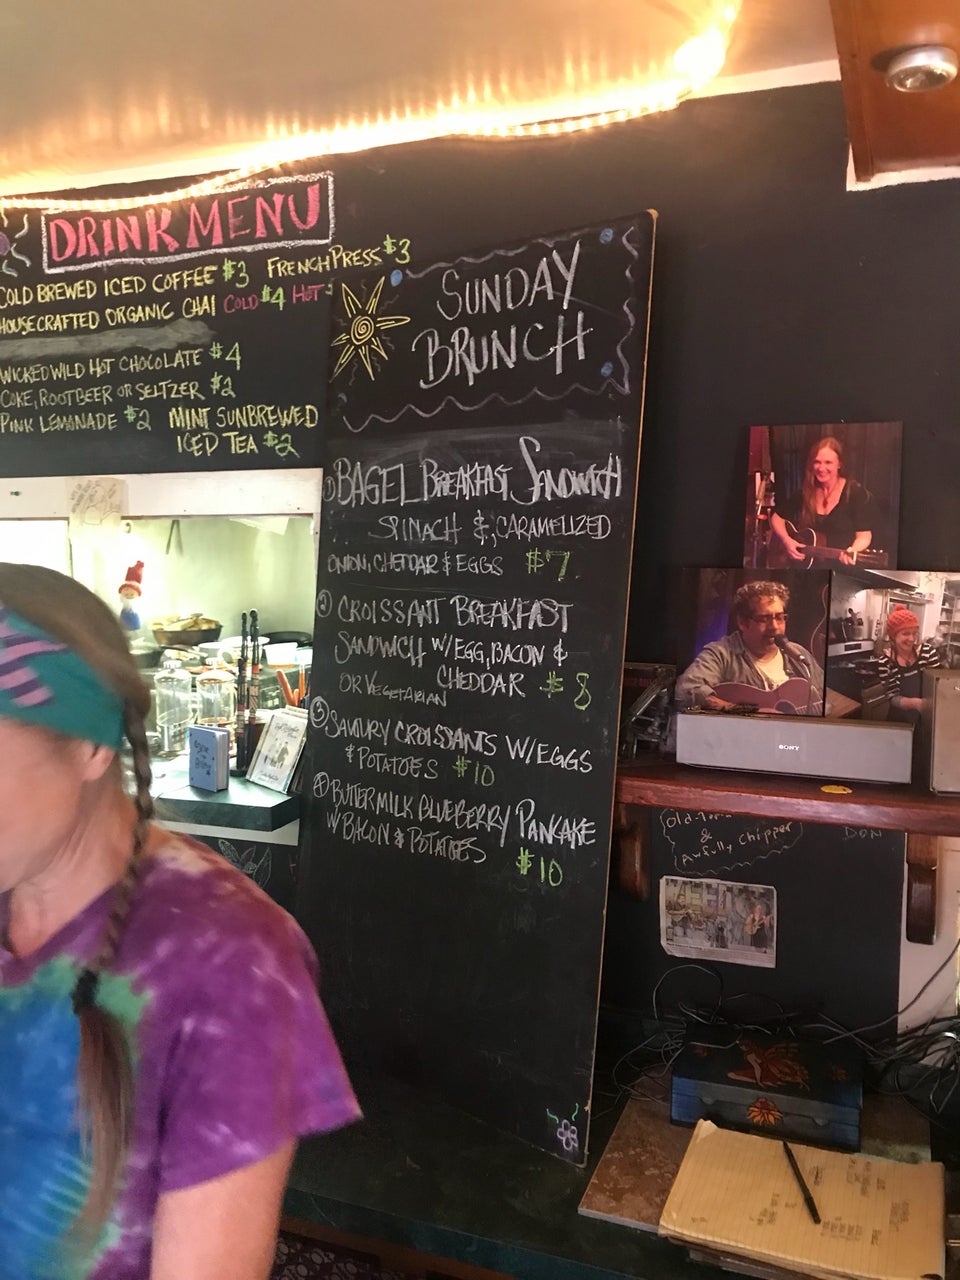 DRINK MENU
COLD BREWED ICED COFFEE $3 FRENCH PRESS $3
HOUSECRAFTED ORGANIC CHAI COLD $4 HOT
WICKED WILD HOT CHOCOLATE $4
COKE, ROOTBEER OR SELTZER $2
PINK LEMONADE $2 MINT SUNBREWED
ICED TEA $2
SUNDAY
BRUNCH
① BAGEL BREAKFAST SANDWICH
SPINACH &, CARAMELIZED
ONION, CHEDDAR & EGGS $7
② CROISSANT BREAKFAST
SANDWICH W/EGG, BACON &
CHEDDAR $8
OR VEGETARIAN
③ SAVOURY CROISSANTS W/EGGS
& POTATOES $10
④ BUTTERMILK BLUEBERRY PANCAKE
W/BACON & POTATOES
$10
SONY
&
AWfully Chipper
DON